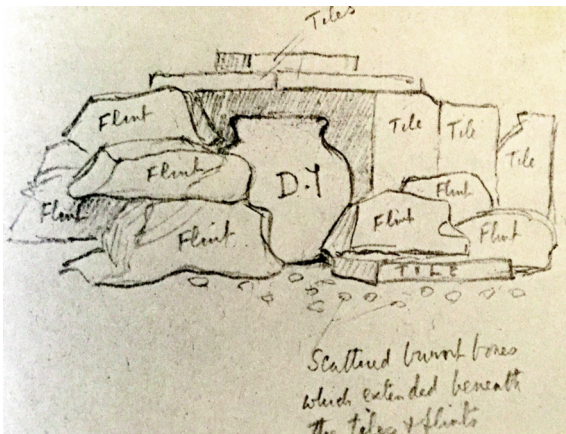 Tiles
Flint
Tile
Tile
Flint
Tile
D.Y
Flint
Flint
Flint
Flint
Flint
TILE
Scattered burnt bones
which extended beneath
the tiles & flints